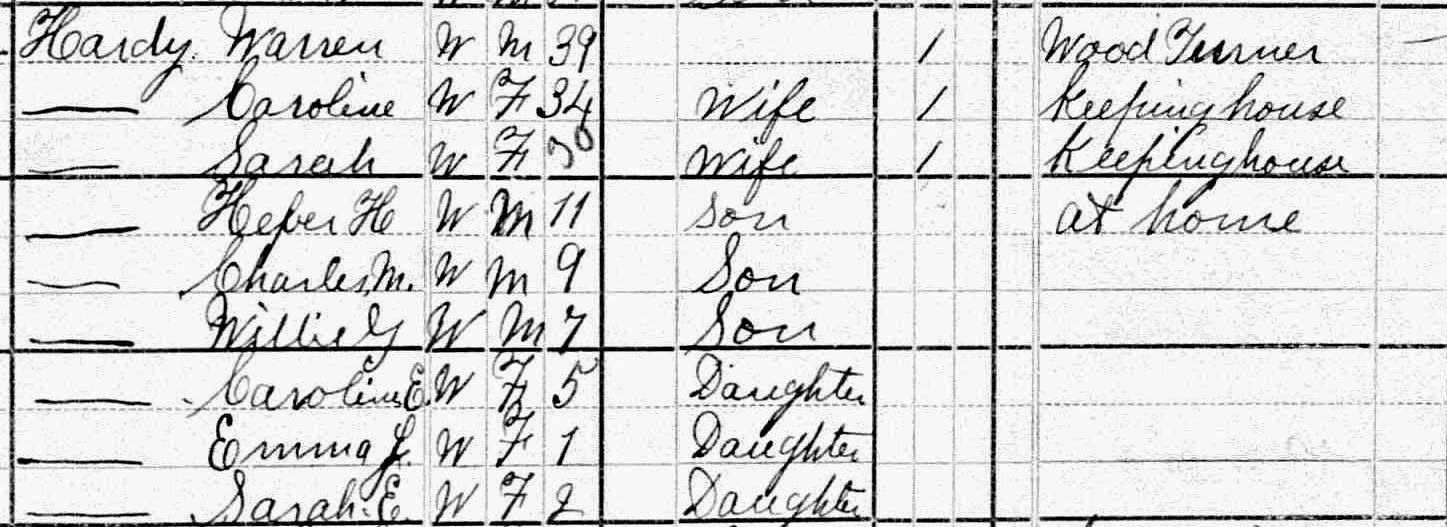 Hardy. Warren W M 39 1 Wood Turner
— Caroline W F 34 Wife 1 Keeping house
— Sarah W F 30 Wife 1 Keeping house
— Heber H W M 11 Son at home
— Charles M. W M 9 Son
— Willie G W M 7 Son
— Caroline E. W F 5 Daughter
— Emma L. W F 1 Daughter
— Sarah. E. W F 2 Daughter